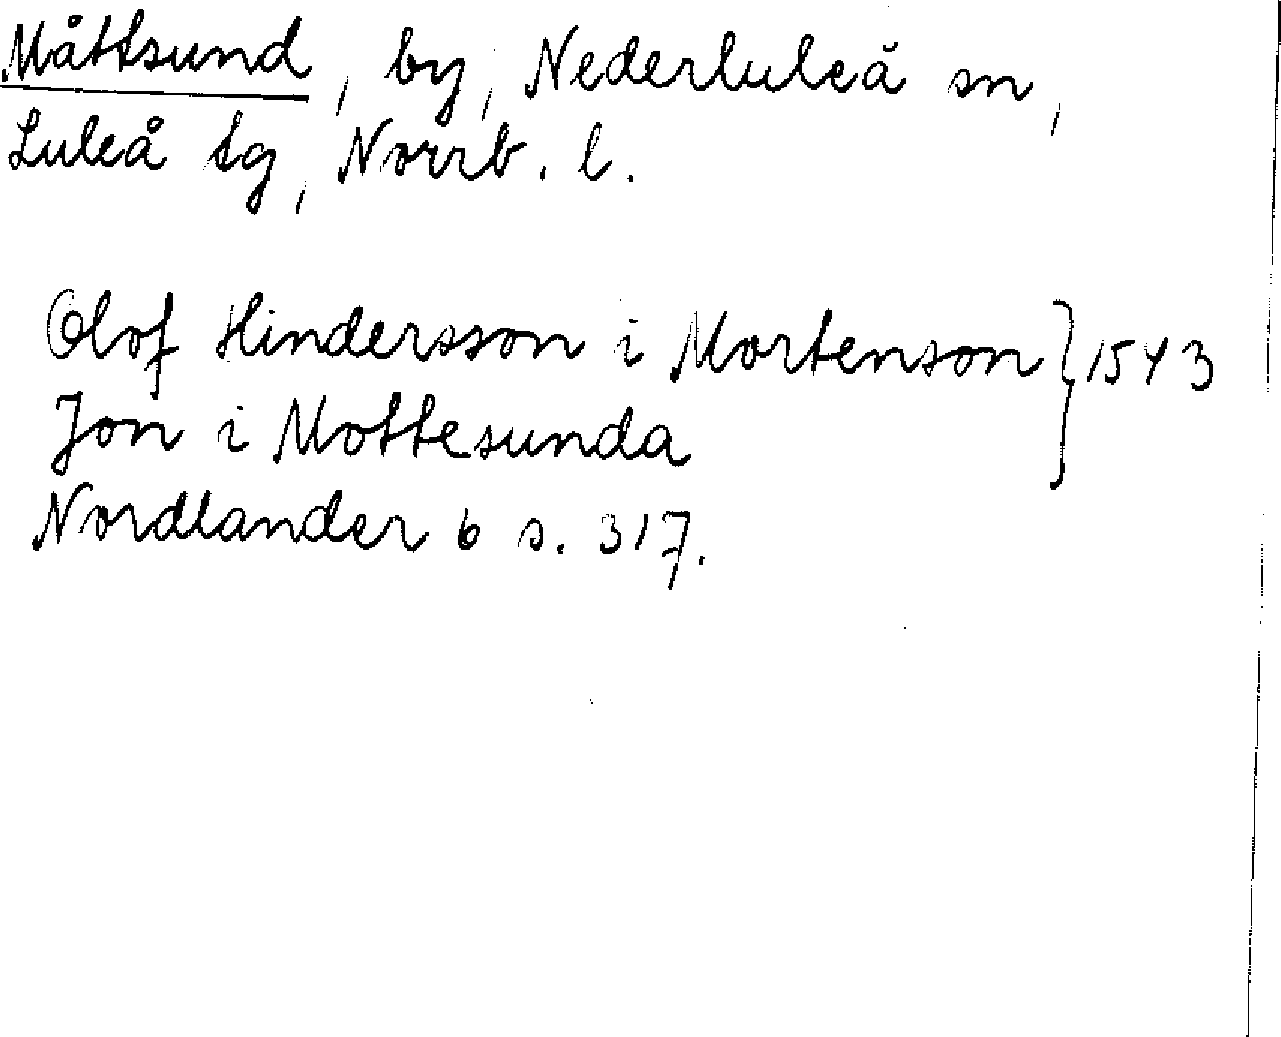 Måttsund, by, Nederluleå sn,
Luleå tg, Norrb. l.
Olof Hindersson i Mortenson } 1543
Jon i Mottesunda
Nordlander 6 s. 317.